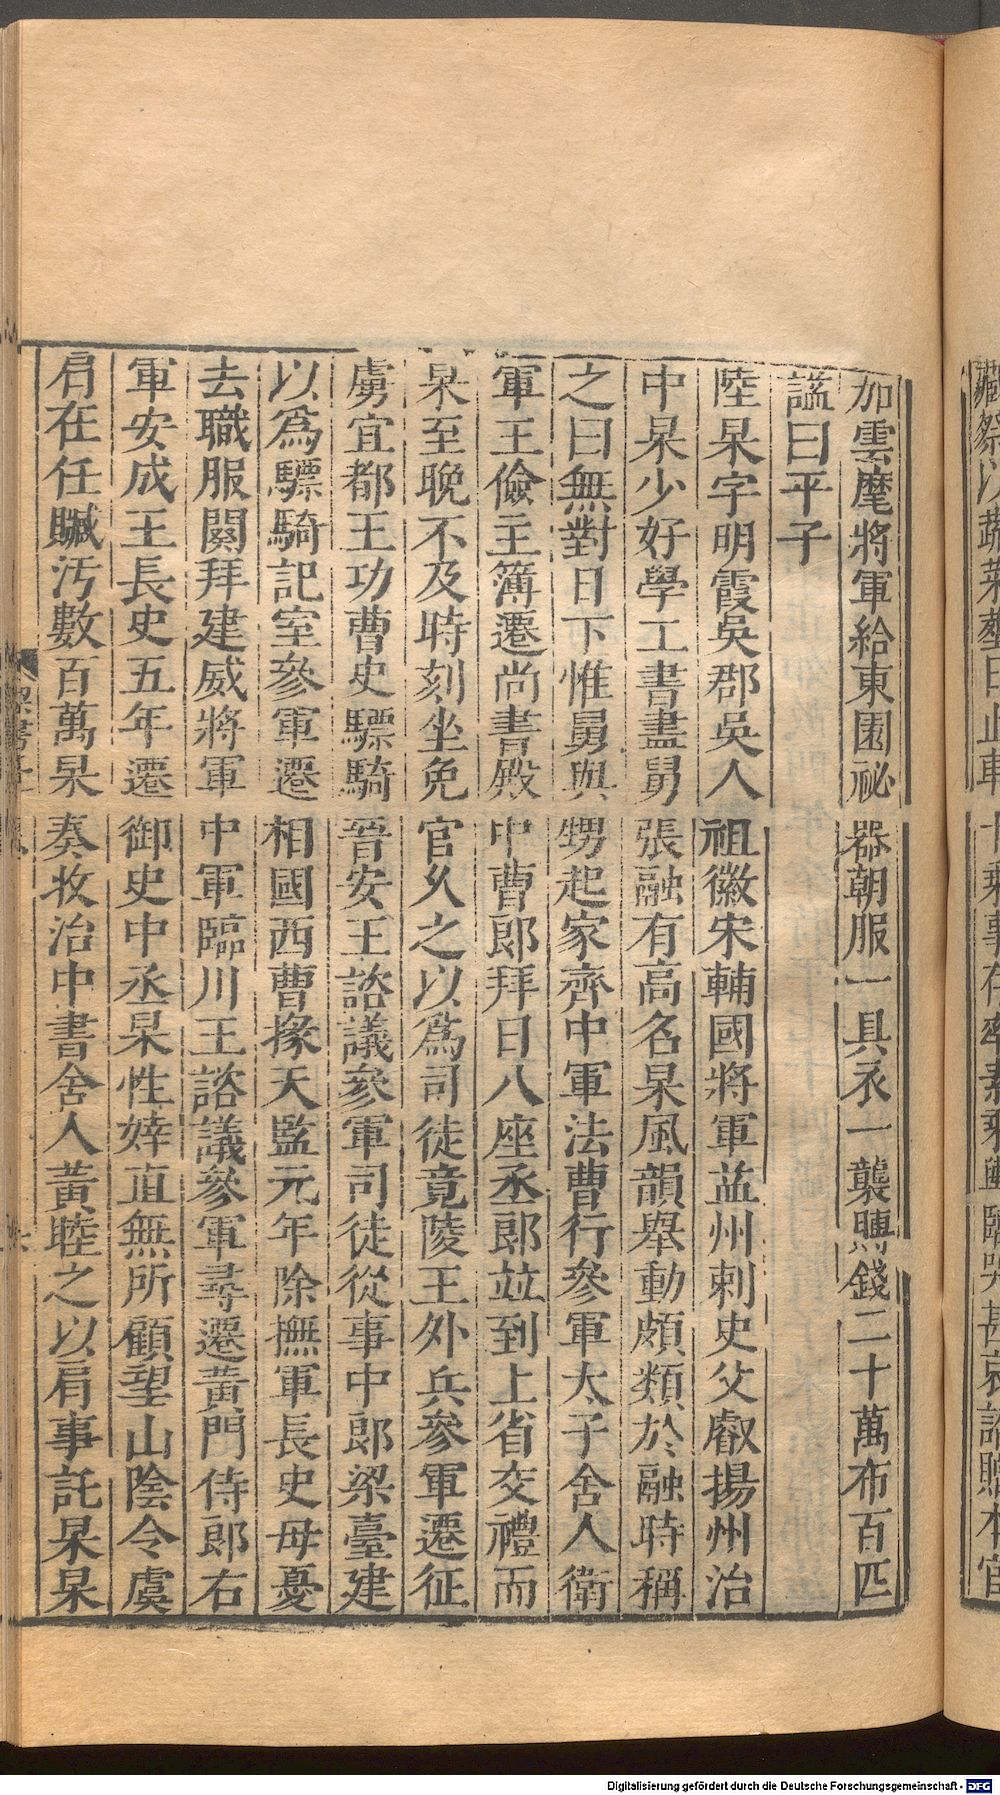 加雲麾將軍給東園祕器朝服一具衣一襲賻錢二十萬布百匹
謚曰平子
陸杲字明霞吳郡吳人祖徽宋輔國將軍益州刺史父叡揚州治
中杲少好學工書畫舅張融有高名杲風韻舉動頗類於融時稱
之曰無對日下惟舅與甥起家齊中軍法曹行參軍太子舍人衛
軍王儉主簿遷尚書殿中曹郎拜日八座丞郎並到上省交禮而
杲至晚不及時刻坐免官久之以爲司徒竟陵王外兵參軍遷征
虜宜都王功曹史驃騎晉安王諮議參軍司徒從事中郎梁臺建
以爲驃騎記室參軍遷相國西曹掾天監元年除撫軍長史母憂
去職服闋拜建威將軍中軍臨川王諮議參軍尋遷黃門侍郎右
軍安成王長史五年遷御史中丞杲性婞直無所顧望山陰令虞
肩在任贓汚數百萬杲奏收治中書舍人黃睦之以肩事託杲杲
Digitalisierung gefördert durch die Deutsche Forschungsgemeinschaft - DFG